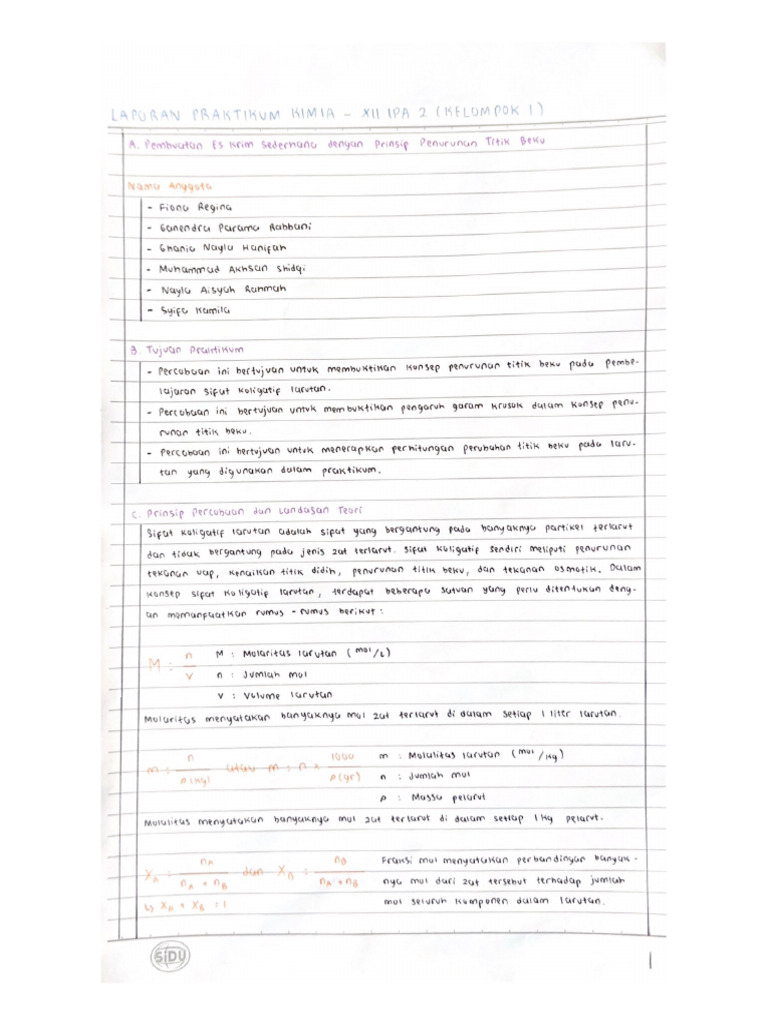 LAPORAN PRAKTIKUM KIMIA - XII IPA 2 (KELOMPOK 1)
A. Pembuatan Es Krim Sederhana dengan Prinsip Penurunan Titik Beku
Nama Anggota
- Fiona Regina
- Ganendra Parama Rabbani
- Ghania Nayla Hanifah
- Muhammad Akhsan Shidqi
- Nayla Aisyah Rahmah
- Syifa Kamila
B. Tujuan Praktikum
- Percobaan ini bertujuan untuk membuktikan konsep penurunan titik beku pada pembe-
lajaran sifat koligatif larutan.
- Percobaan ini bertujuan untuk membuktikan pengaruh garam krusok dalam konsep penu-
runan titik beku.
- Percobaan ini bertujuan untuk menerapkan perhitungan perubahan titik beku pada laru-
tan yang digunakan dalam praktikum.
C. Prinsip Percobaan dan Landasan Teori
Sifat koligatif larutan adalah sifat yang bergantung pada banyaknya partikel terlarut
dan tidak bergantung pada jenis zat terlarut. Sifat koligatif sendiri meliputi penurunan
tekanan uap, kenaikan titik didih, penurunan titik beku, dan tekanan osmotik. Dalam
konsep sifat koligatif larutan, terdapat beberapa satuan yang perlu ditentukan deng-
an memanfaatkan rumus - rumus berikut :
M : n/V M : Molaritas larutan (mol/L)
n : Jumlah mol
V : Volume larutan
Molaritas menyatakan banyaknya mol zat terlarut di dalam setiap 1 liter larutan.
m : n/p(kg) atau m : n × 1000/p(gr) m : Molalitas larutan (mol/kg)
n : Jumlah mol
p : Massa pelarut
Molalitas menyatakan banyaknya mol zat terlarut di dalam setiap 1 kg pelarut.
X_A : n_A/(n_A + n_B) dan X_B : n_B/(n_A + n_B) Fraksi mol menyatakan perbandingan banyak-
nya mol dari zat tersebut terhadap jumlah
↳ X_A + X_B : 1 mol seluruh komponen dalam larutan.
SiDU
1